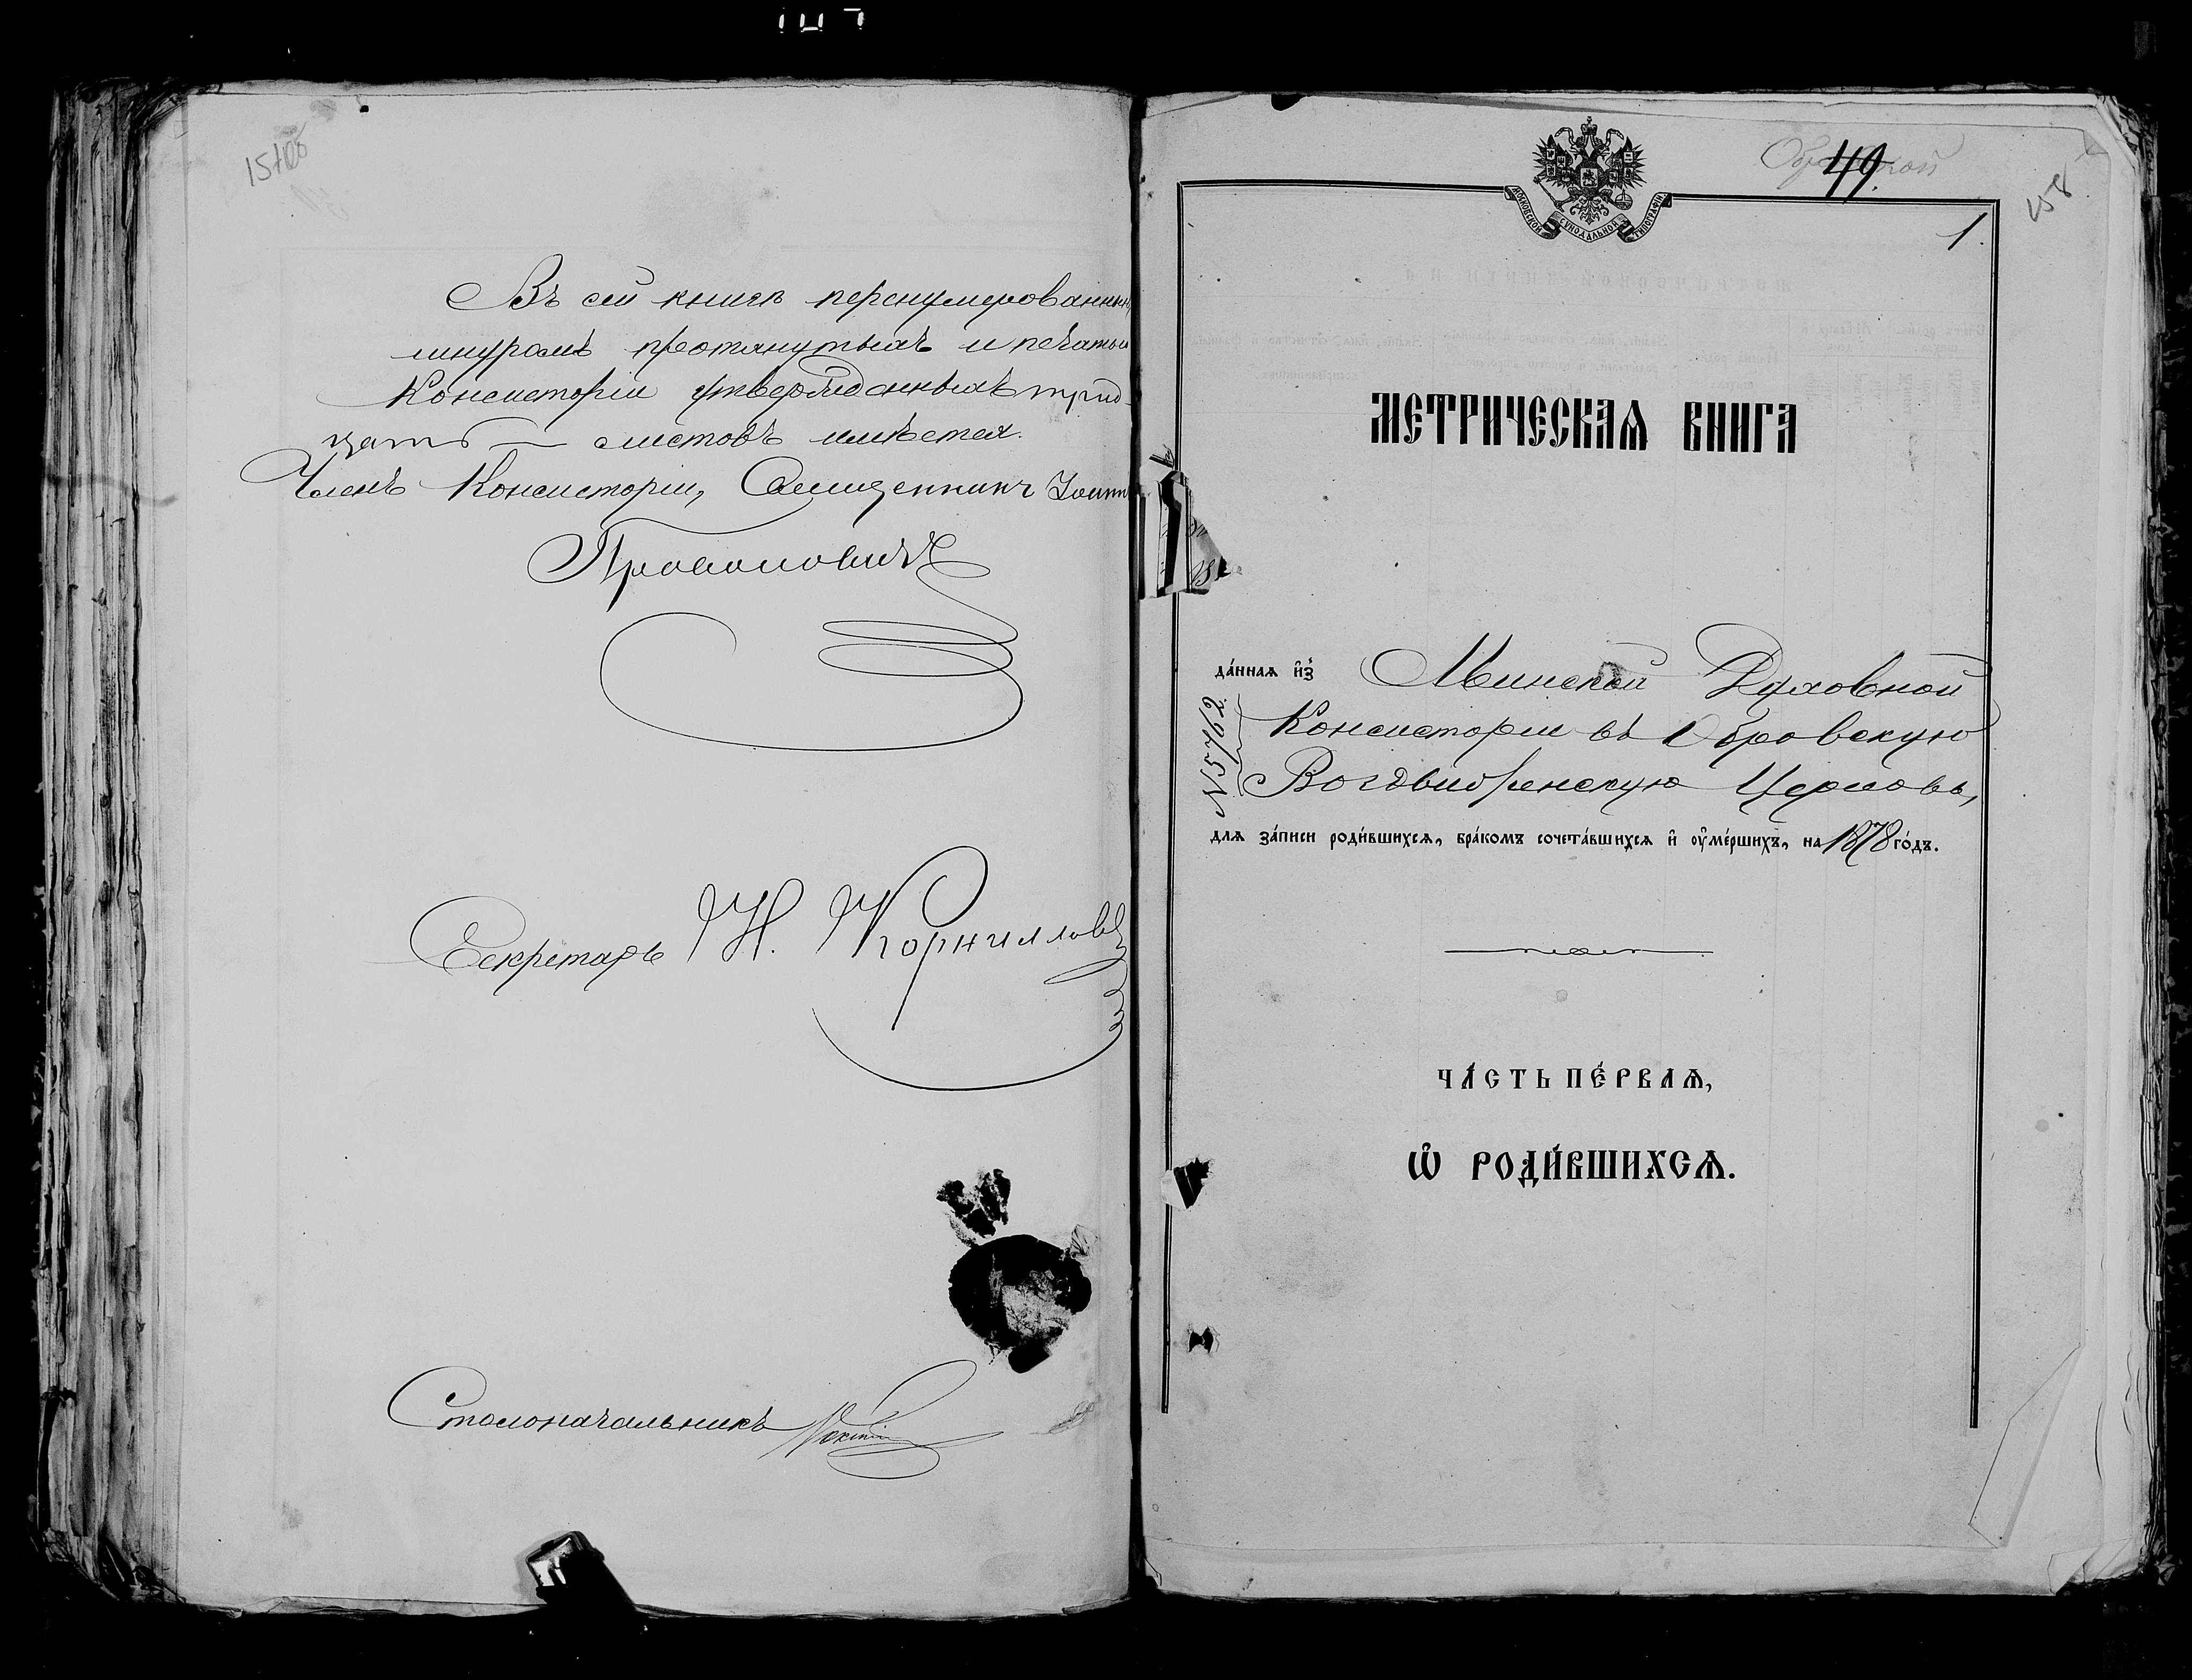 Въ сей книгѣ перенумерованныхъ
шнуромъ протянутыхъ и печатью
Консисторіи утвержденныхъ трид-
цать листовъ имѣется.
Членъ Консисторіи, Священникъ Іоаннъ
Секретарь Н. Корнилловъ
Столоначальникъ
МОСКОВСКОЙ СѴНОДАЛЬНОЙ ТИПОГРАФІИ
49
158
1.
МЕТРИЧЕСКАѦ КНИГА
да́ннаѧ и҆з̾ Минской Духовной
Консисторіи въ Обровскую
Воздвиженскую Церковь,
N 5762
длѧ за́писи роди́вшихсѧ, бра́комъ сочета́вшихсѧ и҆ ᲂу҆ме́ршихъ, на 1878 го́дъ.
ЧА́СТЬ ПЕ́РВАѦ,
Ѽ РОДИ́ВШИХСѦ.